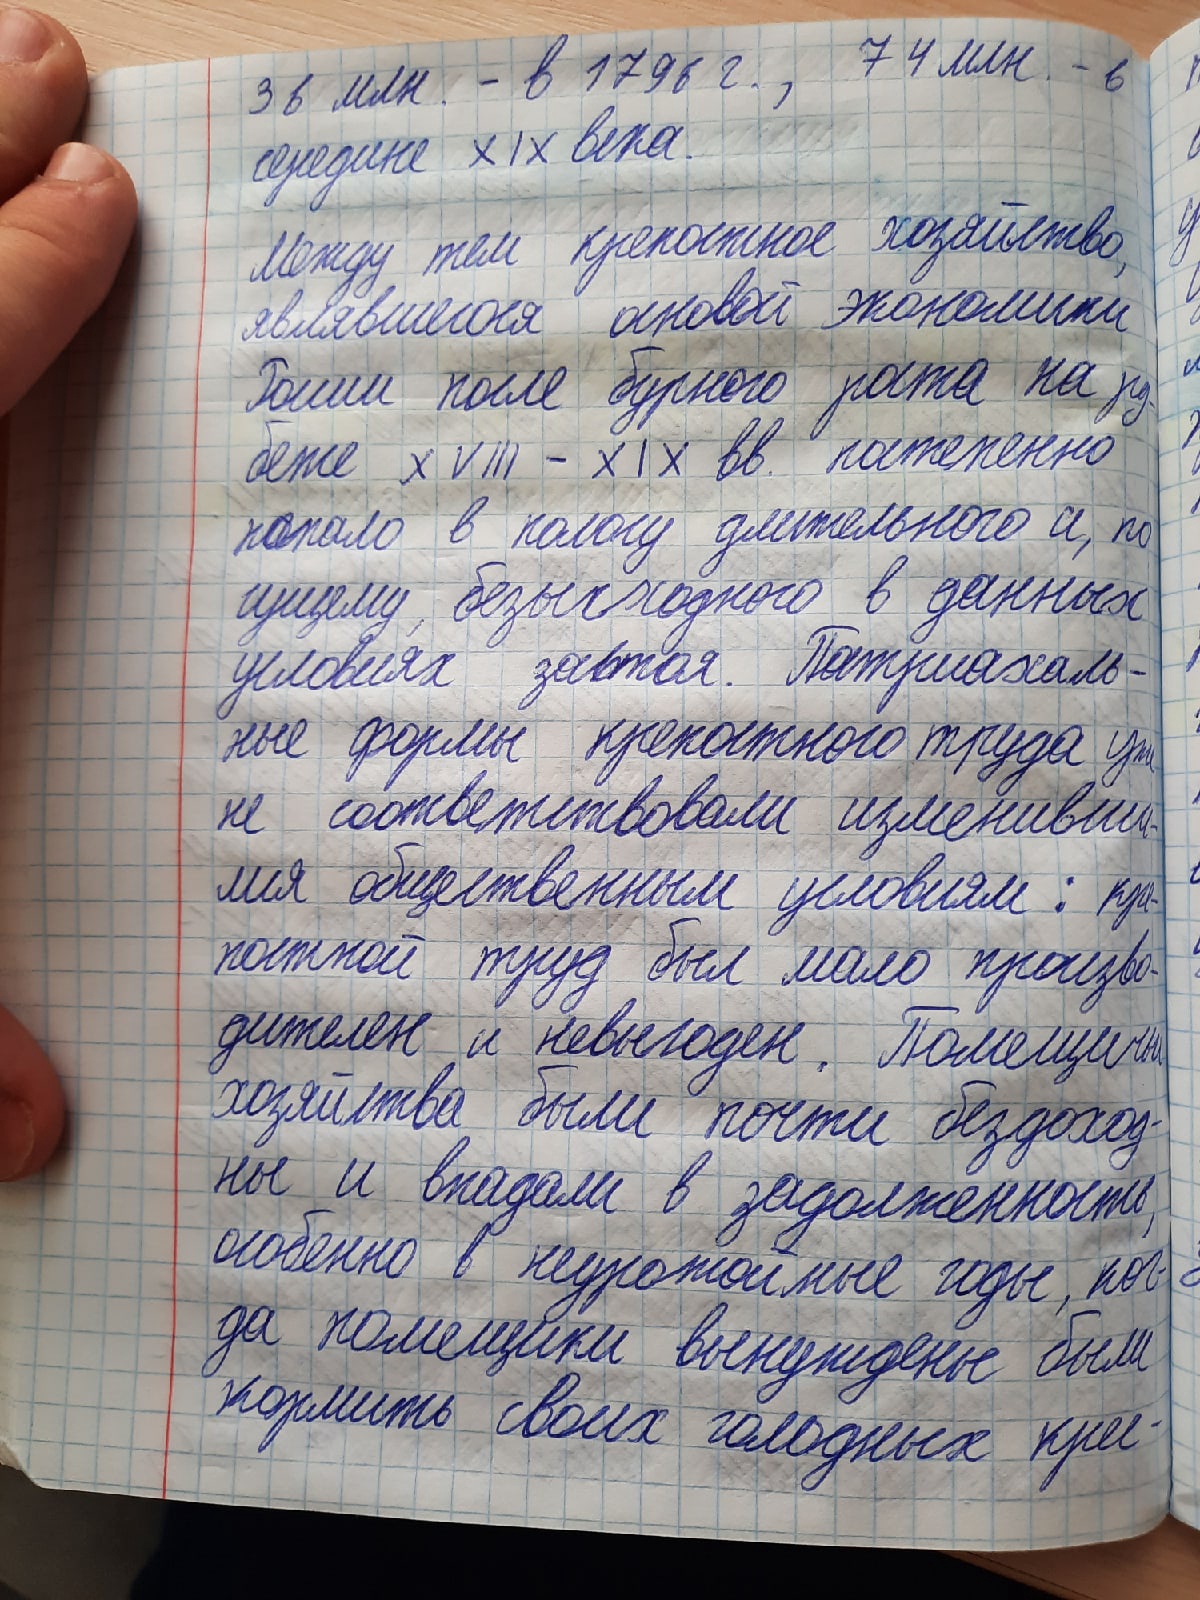 36 млн. - в 1796 г., 74 млн. - в
середине XIX века.
Между тем крепостное хозяйство,
являвшегося основой экономики
России после бурного роста на ру-
беже XVIII - XIX вв. постепенно
попало в полосу длительного и, по
сущему, безысходного в данных
условиях застоя. Патриахаль-
ные формы крепостного труда уже
не соответствовали изменивши-
мся общественным условиям: кре-
постной труд был мало произво-
дителен и невыгоден. Помещичьи
хозяйства были почти бездоход-
ны и впадали в задолженность,
особенно в неурожайные годы, ког-
да помещики вынуждены были
кормить своих голодных кре-